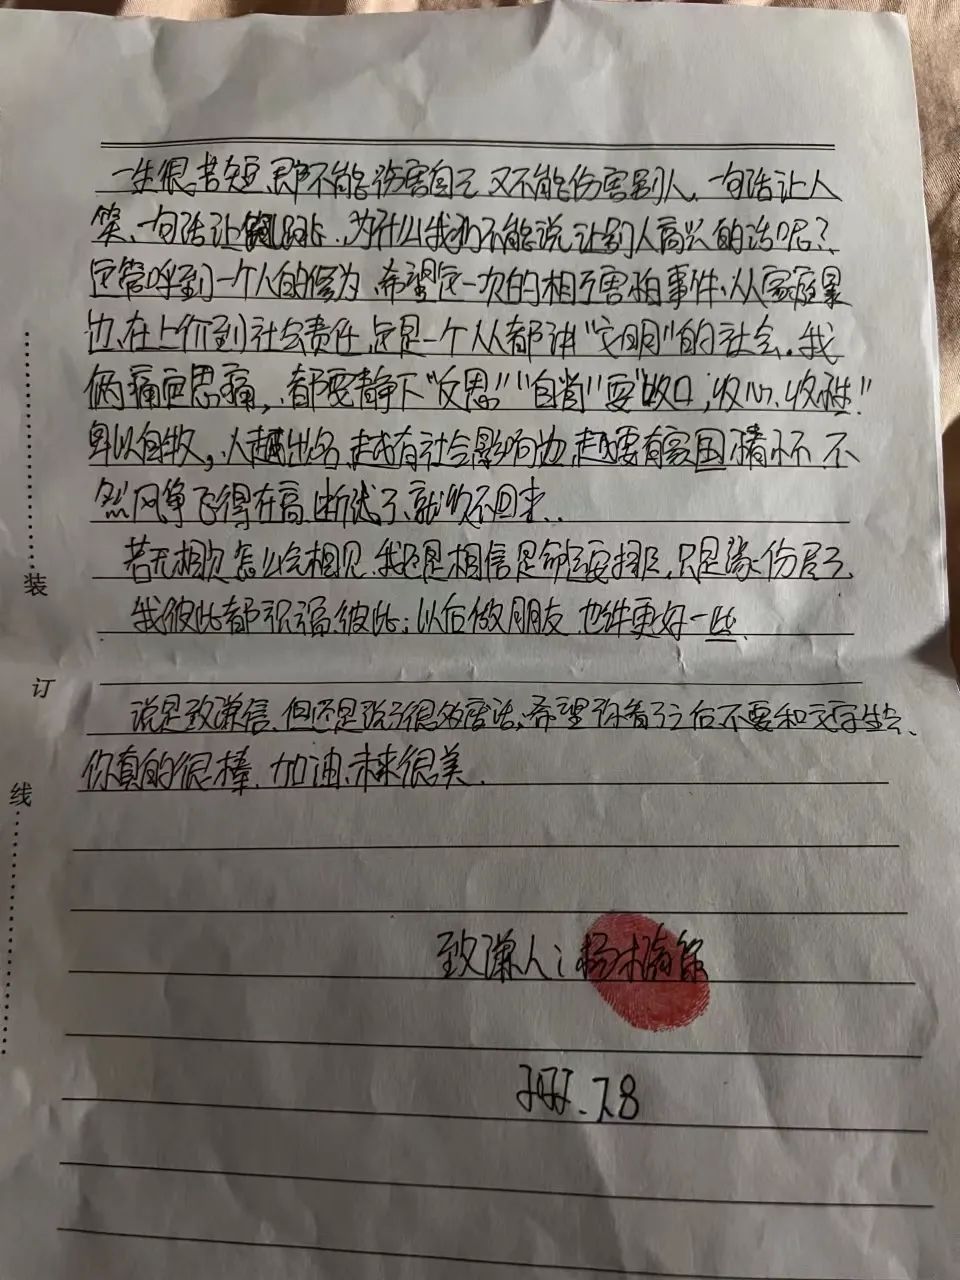 一生很苦短、既不能伤害自己 又不能伤害别人、一句话让人
笑、一句话让人跳、为什么我们不能说让别人高兴的话呢？
到一个人的修为、希望这一次的相互害怕事件、从家庭
边、在上价到社会责任、这是一个人人都讲“文明”的社会。我
俩痛定思痛，都要静下“反思”“自省”要“收口，收心、收性！”
卑以自牧，人越出名、越有社会影响力、越要有家国情怀 不
然风筝飞得在高、断线了、就收不回来..
若无相欠 怎么会相见、我还是相信是命运安排、只是缘份尽了、
我彼此都祝福彼此；以后做朋友 也许更好一些、
说是致谦信、但还是说了很多废话、希望你看了之后不要和文字生气、
你真的很棒、加油、未来很美.
致谦人：
7.8
装
订
线